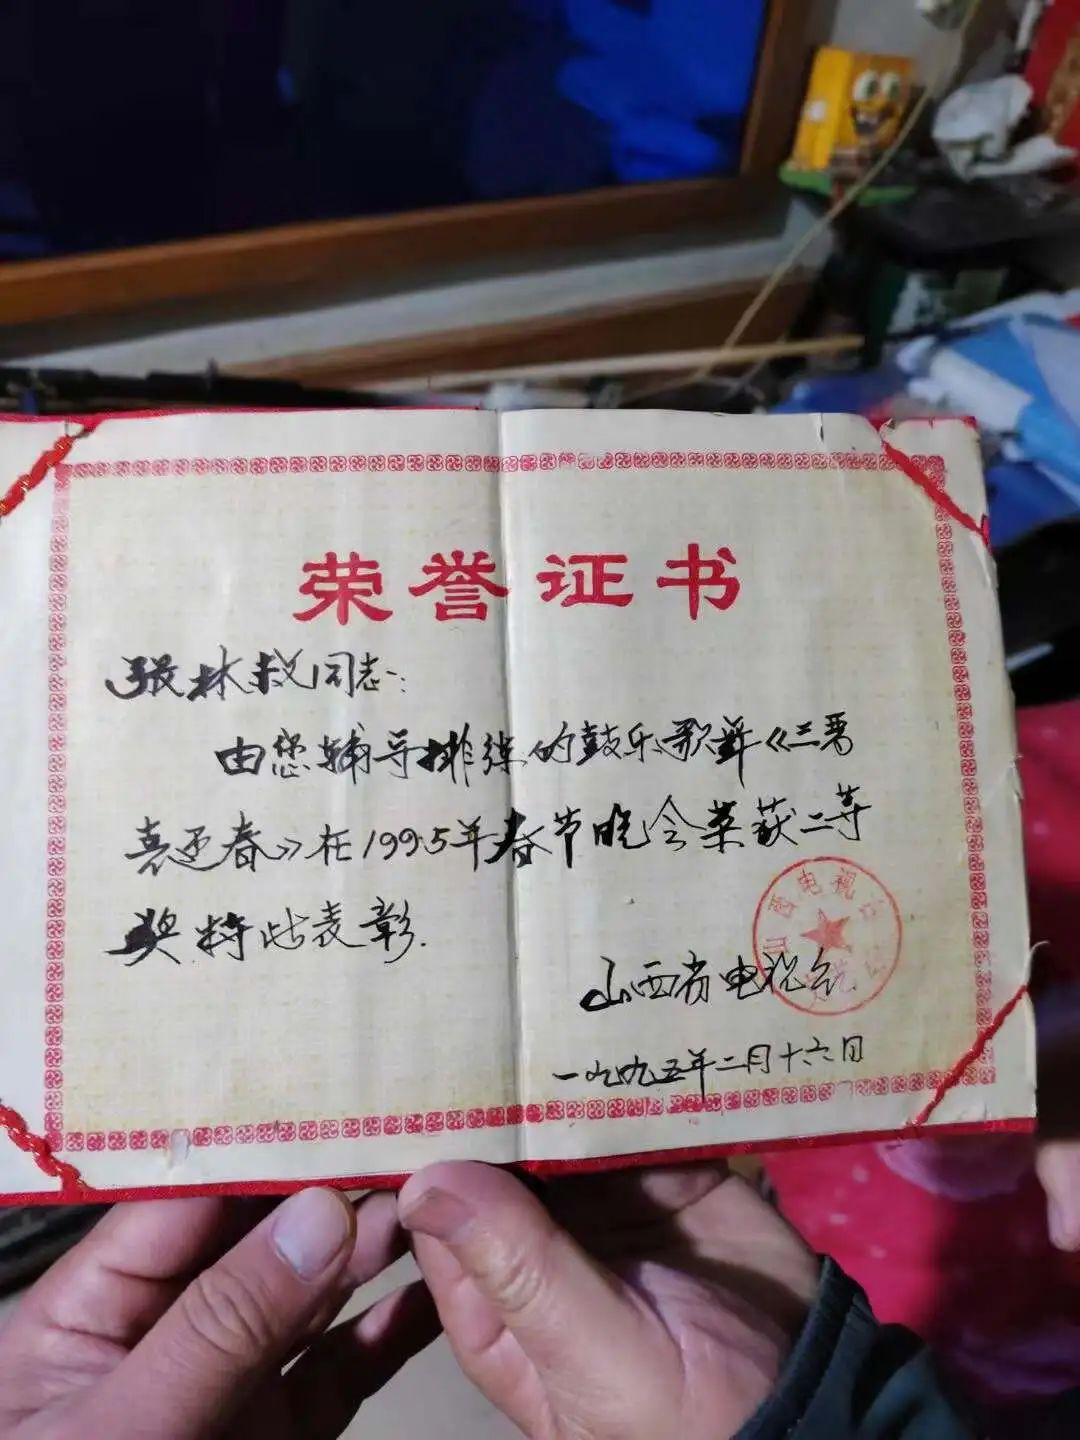 荣誉证书
张林叔同志:
由您辅导排练的鼓乐歌舞《三晋
喜迎春》在1995年春节晚会荣获二等
奖特此表彰.
山西电视台
山西省电视台
一九九五年二月十六日